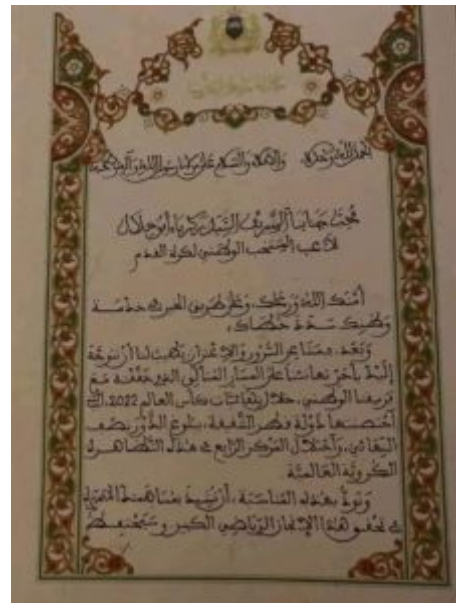 الحمد لله وحده، والصلاة والسلام على مولانا رسول الله وآله وصحبه
محب جنابنا الشريف السيد زكرياء أبو خلال
لاعب المنتخب الوطني لكرة القدم
أمنك الله ورعاك، وعلى طريق الخير في خدمة
وطنك سدد خطاك،
وبعد، فمما يبعث على السرور والاعتزاز يطيب لنا أن نتوجه
إليك بأحر تهانئنا على المسار المتألق الذي حققته مع
فريقنا الوطني، خلال نهائيات كأس العالم 2022، التي
احتضنتها دولة قطر الشقيقة، ببلوغ الدور نصف
النهائي، واحتلال المركز الرابع في هذه التظاهرة
الكروية العالمية
ونود بهذه المناسبة، أن نشيد بمساهمتك
في تحقيق هذا الإنجاز الرياضي الكبير